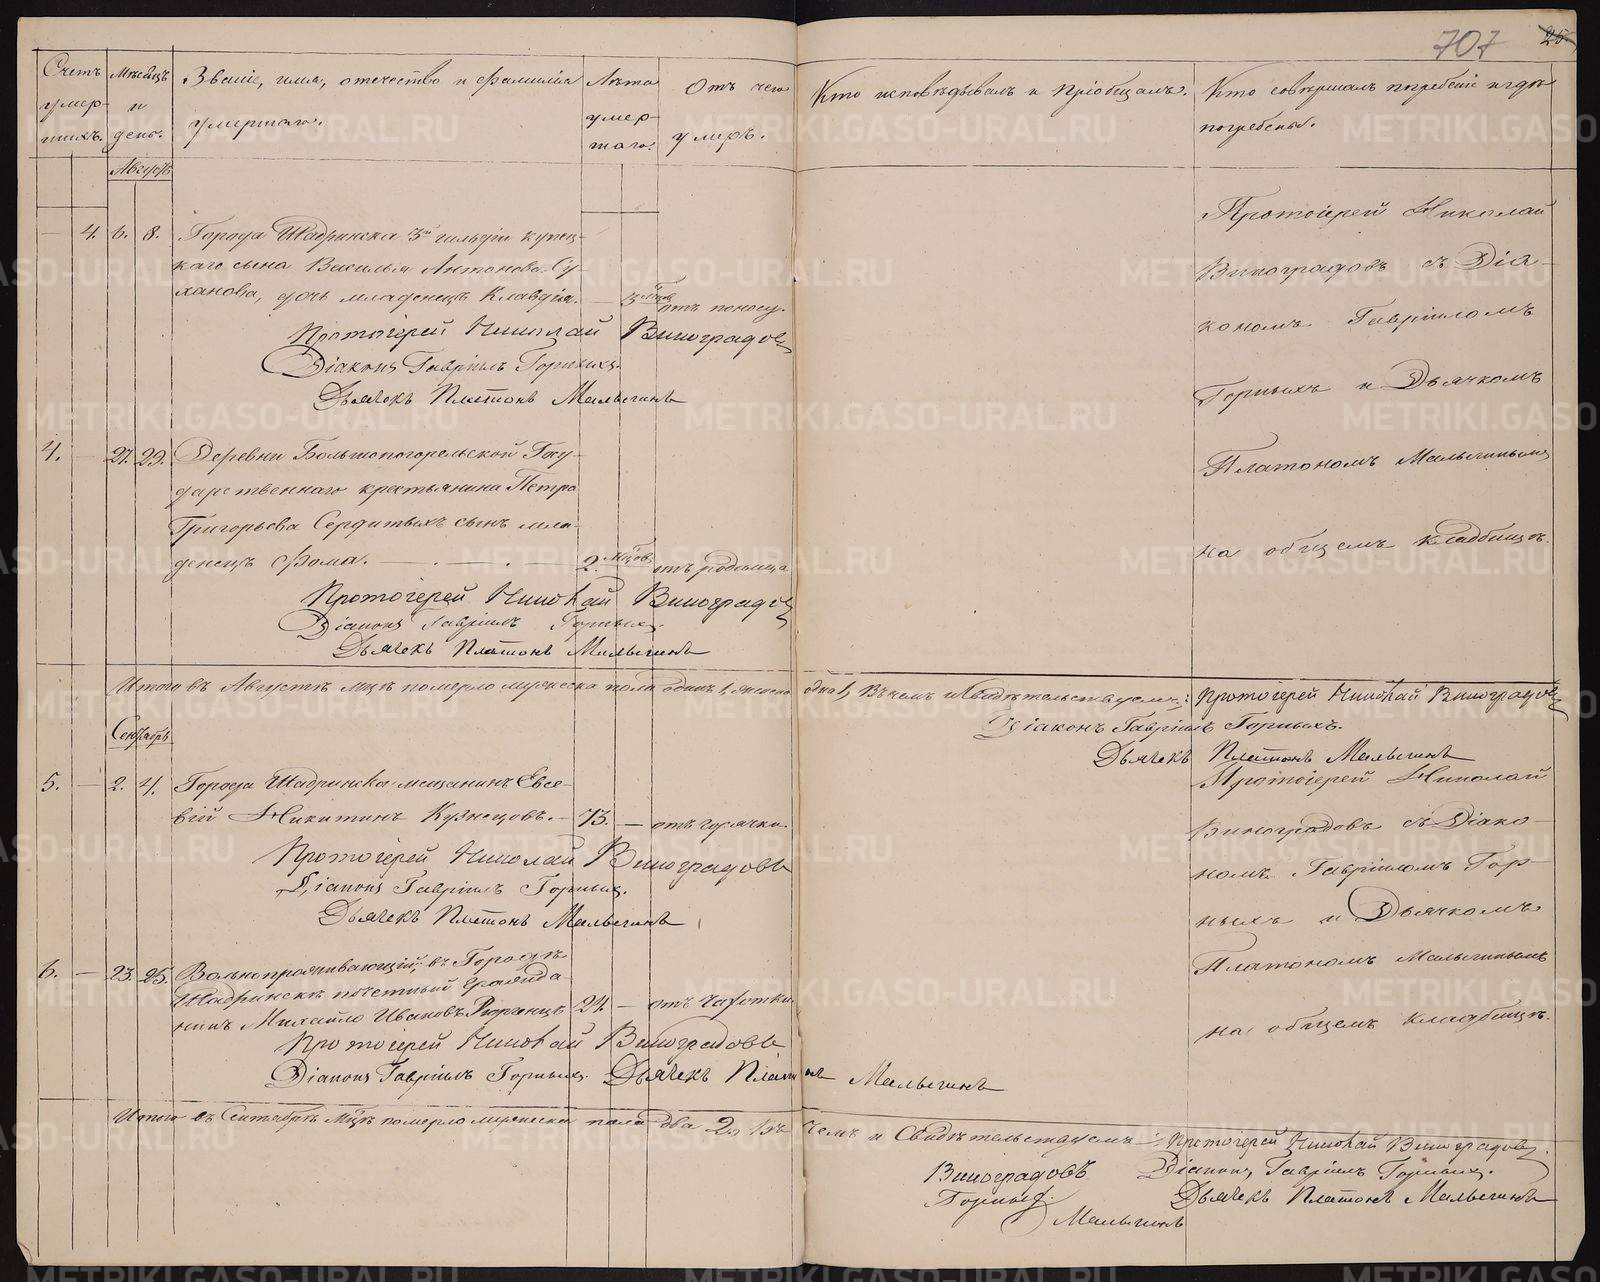 707
25
Счетъ умер-
шихъ.
Мѣсяцъ
и
день.
Званіе, имя, отечество и фамилія
умершаго.
Лѣта
умер-
шаго.
Отъ чего
умеръ.
Кто исповѣдывалъ и пріобщалъ.
Кто совершалъ погребеніе и гдѣ
погребены.
Августъ
— 4. 6. 8. Города Шадринска 3й гильдіи купец-
каго сына Василья Антонова Су-
ханова, дочь младенецъ Клавдія. — 3 мѣс. отъ поносу.
Протоіерей Николай Виноградовъ
Діаконъ Гавріилъ Горныхъ.
Дьячекъ Платонъ Малыгинъ
Протоіерей Николай
Виноградовъ съ Діа-
кономъ Гавріиломъ
Горныхъ и Дьячкомъ
Платономъ Малыгинымъ
на общемъ кладбищѣ.
4. — 27. 29. Деревни Большопогорельской Госу-
дарственнаго крестьянина Петра
Григорьева Сердитыхъ сынъ мла-
денецъ Фома. — 2 мѣсов. отъ родимца
Протоіерей Николай Виноградовъ
Діаконъ Гавріилъ Горныхъ.
Дьячекъ Платонъ Малыгинъ
Итого въ Августѣ мцѣ померло мужеска пола одинъ 1, женска одна 1, Въ чемъ и свидѣтельствуемъ: Протоіерей Николай Виноградовъ
Діаконъ Гавріилъ Горныхъ.
Дьячекъ Платонъ Малыгинъ
Сентябрь
5. — 2. 4. Города Шадринска мещанинъ Евсе-
вій Никитинъ Кузнецовъ. — 73. — отъ горячки.
Протоіерей Николай Виноградовъ
Діаконъ Гавріилъ Горныхъ.
Дьячекъ Платонъ Малыгинъ
Протоіерей Николай
Виноградовъ съ Діако-
номъ Гавріиломъ Гор-
ныхъ и Дьячкомъ
Платономъ Малыгинымъ
на общемъ кладбищѣ.
6. — 23. 25. Вольнопроживающій въ Городѣ
Шадринскѣ почетный гражда-
нинъ Михайло Ивановъ 24. — отъ чахотки.
Протоіерей Николай Виноградовъ
Діаконъ Гавріилъ Горныхъ. Дьячекъ Платонъ Малыгинъ
Итого въ Сентябрѣ Мцѣ померло мужеска пола два 2, Въ чемъ и Свидѣтельствуемъ: Протоіерей Николай Виноградовъ.
Виноградовъ Діаконъ Гавріилъ Горныхъ.
Горныхъ. Дьячекъ Платонъ Малыгинъ
Малыгинъ
METRIKI.GASO-URAL.RU